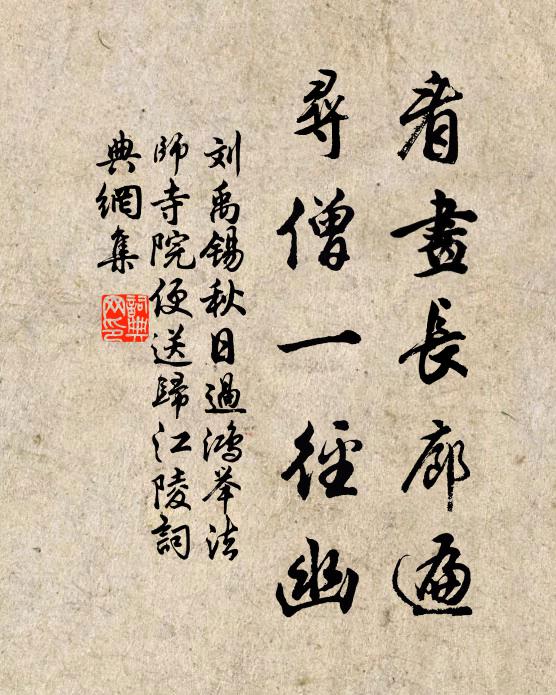 看畫長廊遍
尋僧一徑幽
刘禹锡秋日過鸿举法
師寺院便送歸江陵詞
典網集
詞典
网印